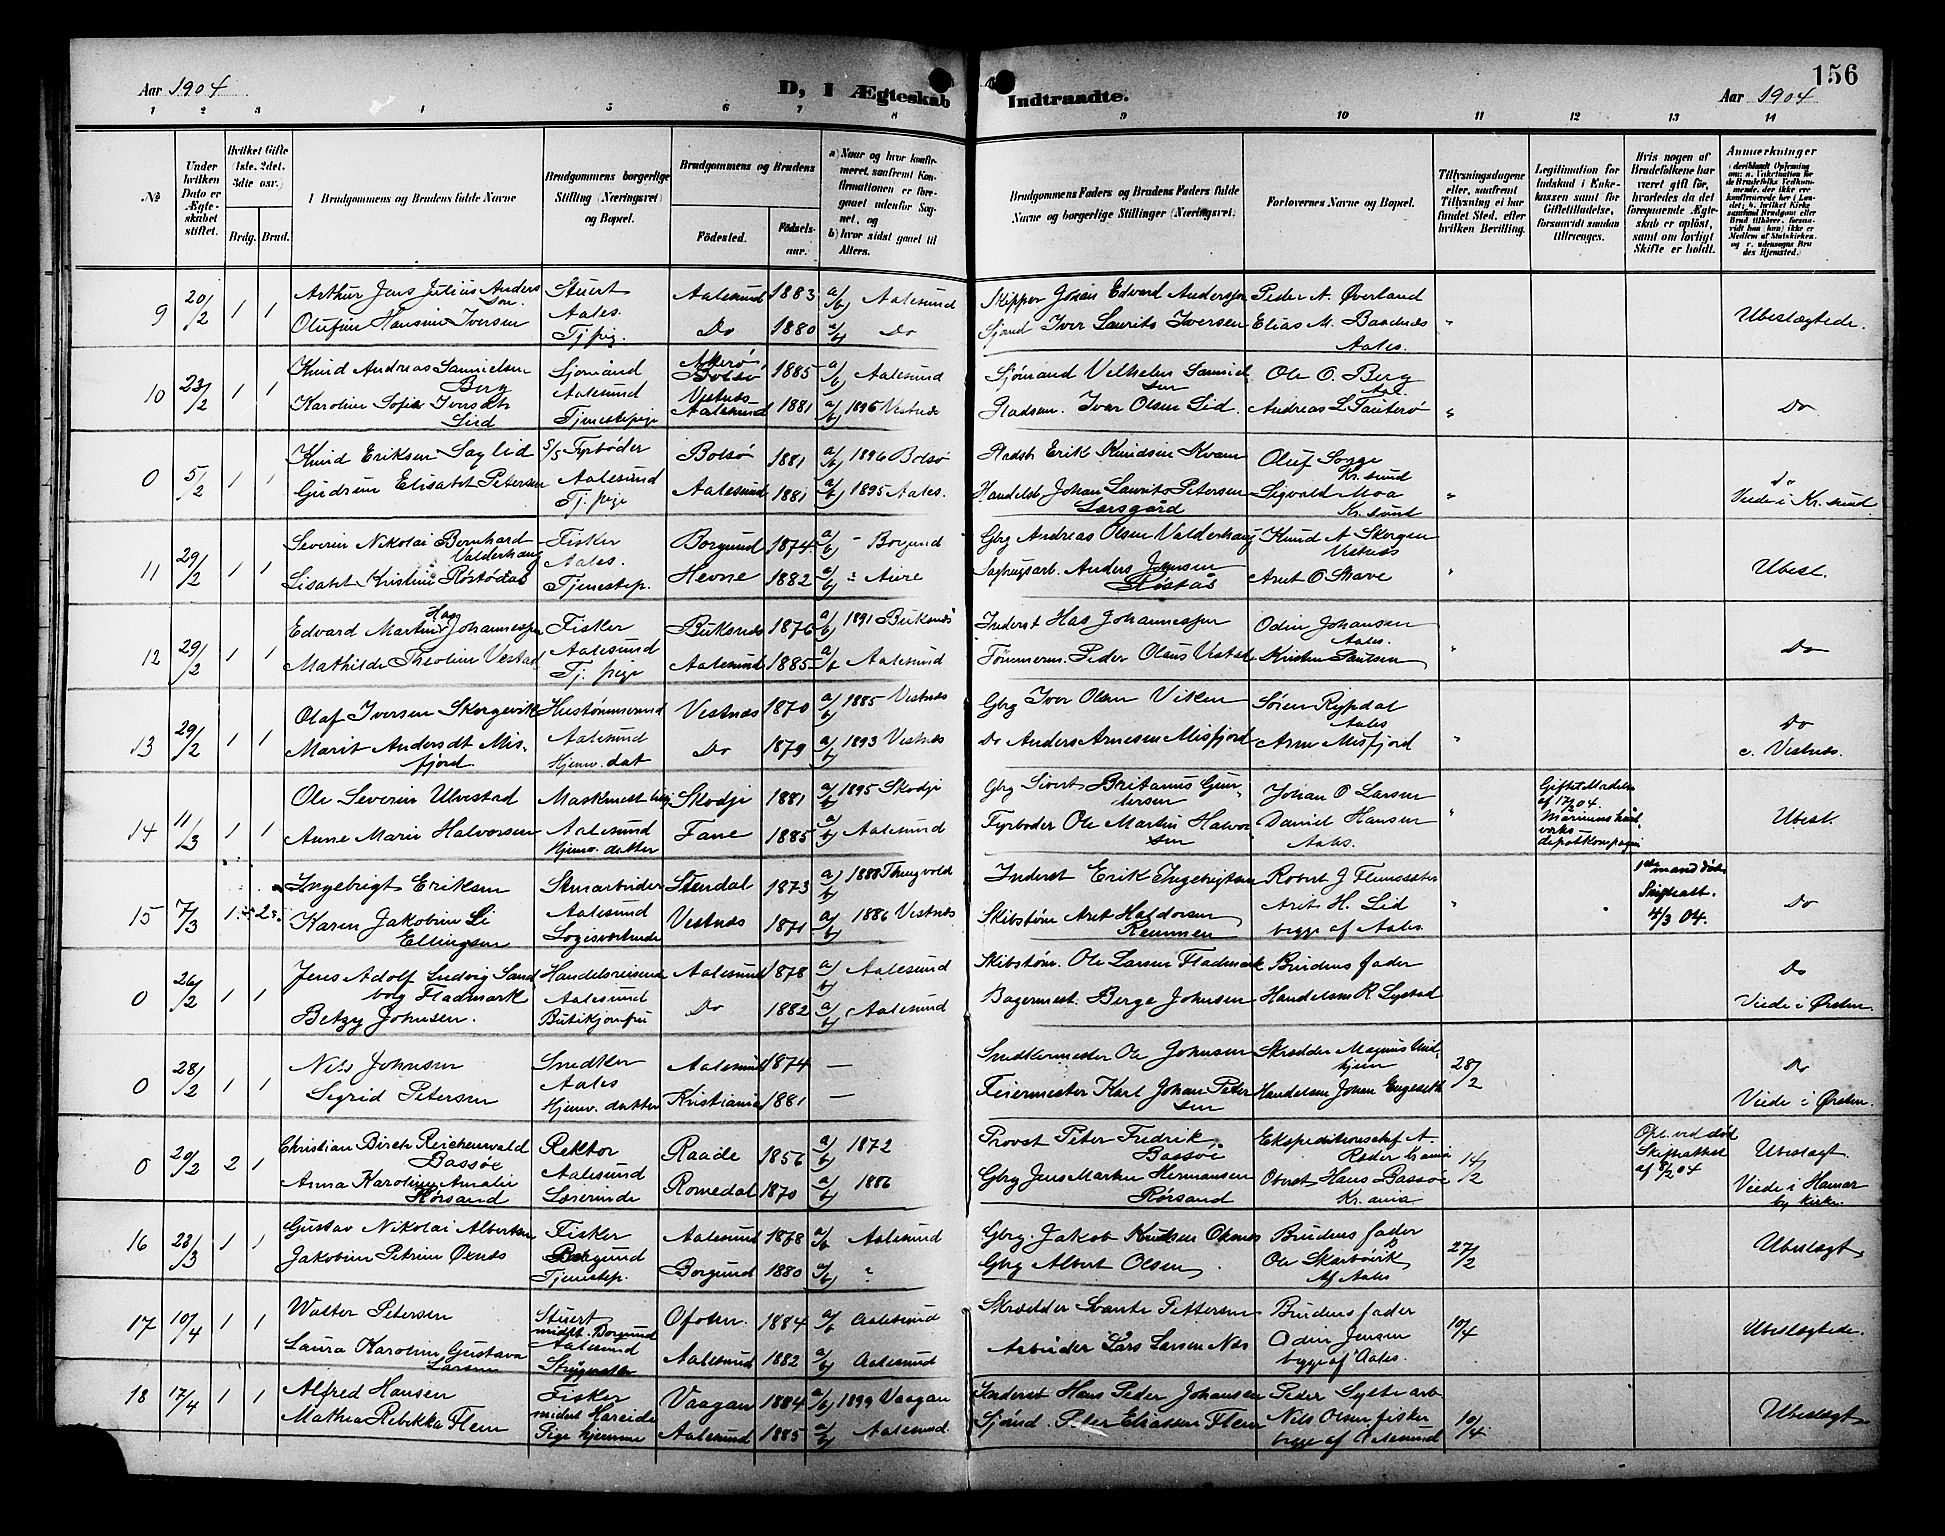 Aar 1904
D, I Ægteskab
Indtraadte.
156
Aar 1904
1 2 3 4 5 6 7 8
9 10 11 12 13 14
No
Under hvilken Dato er Ægteskabet stiftet.
Hvilket Gifte (1ste, 2det, 3die osv.)
Brdg. Brud.
Brudgommens og Brudens fulde Navne
Brudgommens borgerlige Stilling (Næringsvei) og Bopæl.
Brudgommens og Brudens
Fødested.
Fødselsaar.
a) Naar og hvor konfirmeret, samt om Konfirmationen er foregaaet udenfor Sognet, og
b) hvor sidst gaaet til Alters.
Brudgommens Faders og Brudens Faders fulde Navne og borgerlige Stillinger (Næringsvei).
Forlovernes Navne og Bopæl.
Tillysningsdagene eller, saafremt Tillysning ei har fundet Sted, efter hvilken Bevilling.
Legitimation for Indskud i Enkekassen samt for Giftetilladelse, forsaavidt saadan tiltrænges.
Hvis nogen af Brudefolkene har været gift før, hvorledes da det foregaaende Ægteskab er opløst, samt om lovligt Skifte er holdt.
Anmærkninger
9 20/2 1 1 Arthur Jens Julius Anderssen Stuert Aalesund 1883 a/b) Aalesund Skipper Johan Edvard Anderssen Peder A. Øverland
Olufine Hansine Iversen Aales. Tj.pig. Do 1880 a/b) Do Sjømd Iver Laurits Iversen Elias M. Baadnæs Aales. " Ubeslægtede.
10 23/2 1 1 Knud Andreas Samuelsen Berg Sjømand Akerø Bolsø 1885 a/b) Aalesund Sjømand Vilhelm Samuelsen Ole O. Berg Aal.
Karoline Sofie Iversdt Lid Aalesund Tjenestepige Vestnæs Aalesund 1881 a/b) 1896 Vestnæs Pladsm. Iver Olsen Lid. Andreas L. Tauterø " Do
0 5/2 1 1 Knud Eriksen Saglid S/S Fyrbøder Bolsø 1881 a/b) 1896 Bolsø Pladsb. Erik Knudsen Kvam Oluf Sogge Kr.sund
Gudrun Elisabet Petersen Aalesund Tj. pige Aalesund 1881 a/b) 1895 Aales. Handelsb. Johan Laurits Petersen Larsgård Sigvald Moa Kr.sund " do Viede i Kr.sund
11 29/2 1 1 Severin Nikolai Bernhard Valderhaug Fisker Borgund 1874 a/b) " Borgund Gbrg Andreas Olsen Valderhaug Knud A Skorgen Vestnæs
Lisabet Kristine Røstødas Aales. Tjenestep. Hevne 1882 a/b) " Aure Sagbrugsarb. Anders Jensen Røstås Arnt O Stave " Ubesl.
12 29/2 1 1 Edvard Martin Haas Johannessen Fisker Buksnes 1876 a/b) 1891 Buksnes Inderst Has Johannessen Odin Johansen Aales.
Mathilde Theoline Vestad Aalesund Tj. pige Aalesund 1885 a/b) Aalesund Tømmerm. Peder Olaus Vestad Kristen Paulsen " Do
13 29/2 1 1 Olaf Iversen Skorgevik Hustømmermand Vestnæs 1870 a/b) 1885 Vestnæs Gbrg Iver Olsen Viken Søren Rypdal Aales
Marit Andersdt Misfjord. Aalesund Hjemv. dat Do 1879 a/b) 1893 Vestnæs Do Anders Arnesen Misfjord Arne Misfjord " Do c. Vestnæs.
14 11/3 1 1 Ole Severin Ulvestad Skodje 1881 a/b) 1895 Skodje Gbrg Sivert Johan O Larsen
Anne Marie Halvorsen Aalesund Hjemv. datter Fane 1885 a/b) Aalesund Fyrbøder Ole Martin Halvorsen Daniel Hansen Aales. " af 17/2 04. Ubesl.
15 7/3 1 2 Ingebrigt Eriksen Stenarbeider Stendal 1873 a/b) 1888 Thingvold Inderst Erik Ingebrigtsen Robert J. Flemsæter
Karen Jakobine Li Ellingsen Aalesund Logisværtinde Vestnæs 1871 a/b) 1886 Vestnæs Skibstøm Arnt Haldorsen Remmen Arnt H. Lid begge af Aales. " 1ste mand død Skifteatt. 4/3 04. Do
0 26/2 1 1 Jens Adolf Ludvig Sandborg Fladmark Handelsreisende Aalesund 1878 a/b) Aalesund Skibstøm. Ole Larsen Fladmark Brudens fader
Betzy Johnsen. Aalesund Butikjomfru Do 1882 a/b) Aalesund Bagermest. Berge Johnsen Handelsm R Lystad Do Viede i Ørsten.
0 28/2 1 1 Nils Johnsen Snedker Aalesund 1874 — Snedkermester Ole Johnsen Skrædder Magnus
Sigrid Petersen Aales Hjemv. datter Kristiania 1881 — Feiermester Karl Johan Petersen Handelsm Johan Engeseth 28/2 Do Viede i Ørsten.
0 20/2 2 1 Christian Birch Reichenwald Bassøe Rektor Raade 1856 a/b) 1872 Provst Peter Fredrik Bassøe Ekspeditionschef A.
Anna Karoline Amalie Rørsand Aalesund Lærerinde Romedal 1870 a/b) 1886 Gbrg Jens Martin Hermansen Rørsand Oberst Hans Bassøe Kr.ania 14/2 Opl. ved død Skifteattest af 8/2 04 Ubeslægt. Viede i Hamar by kirke.
16 23/3 1 1 Gustav Nikolai Albertsen Fisker Aalesund 1878 a/b Aalesund Gbrg. Jakob Knudsen Oxnes Brudens fader
Jakobine Petrine Øxnæs Borgund Tjenestep. Borgund 1880 a/b) " Gbrg Albert Olsen Ole Skarbøvik Af Aales 27/2 Ubeslægt.
17 10/4 1 1 Walter Petersen Stuert midlt. Borgund Ofoten. 1884 a/b Aalesund Skrædder Svante Pettersen Brudens fader
Laura Karoline Gustava Larsen Aalesund Strygerske Aalesund 1882 a/b) Aalesund Arbeider Lars Larsen Nes Oden Jensen begge af Aales. 10/4 Ubeslægtede.
18 17/4 1 1 Alfred Hansen Fisker midlt Hareide Vaagan 1884 a/b) 1899 Vaagan Inderst Hans Peder Johansen Peder Lystø arb
Mathea Rebekka Flem Pige hjemme Aalesund 1885 a/b) Aalesund. Sjømd. Peter Eliassen Flem Nils Olsen fisker begge af Aalesund 10/4 Ubeslægt.